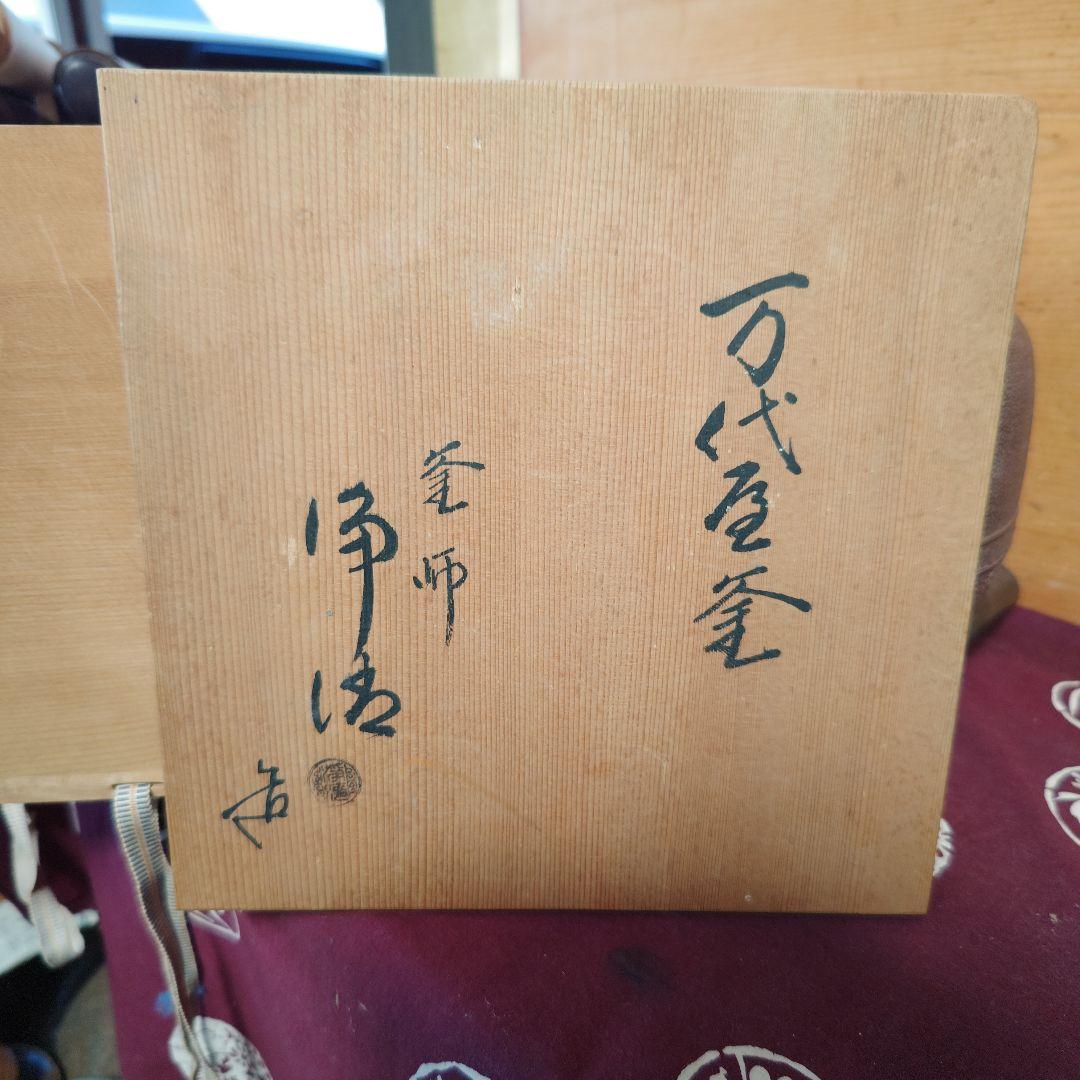 万代屋釜
釜師
浄清
造